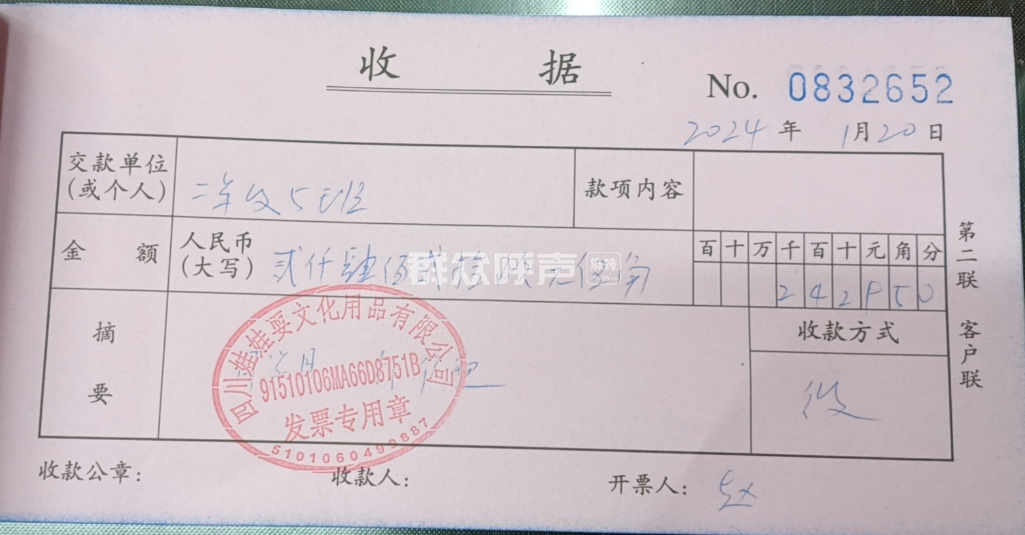 收 据
No. 0832652
2024 年 1月20日
交款单位
(或个人)
二年级5班
款项内容
金 额
人民币
(大写)
贰仟肆佰贰拾 元伍角
百 十 万 千 百 十 元 角 分
2 4 2 5 0
摘
要
收款方式
第二联 客户联
四川娃娃耍文化用品有限公司
91510106MA66D8751B
发票专用章
5101060499887
收款公章:
收款人:
开票人:
群众呼声
麻辣